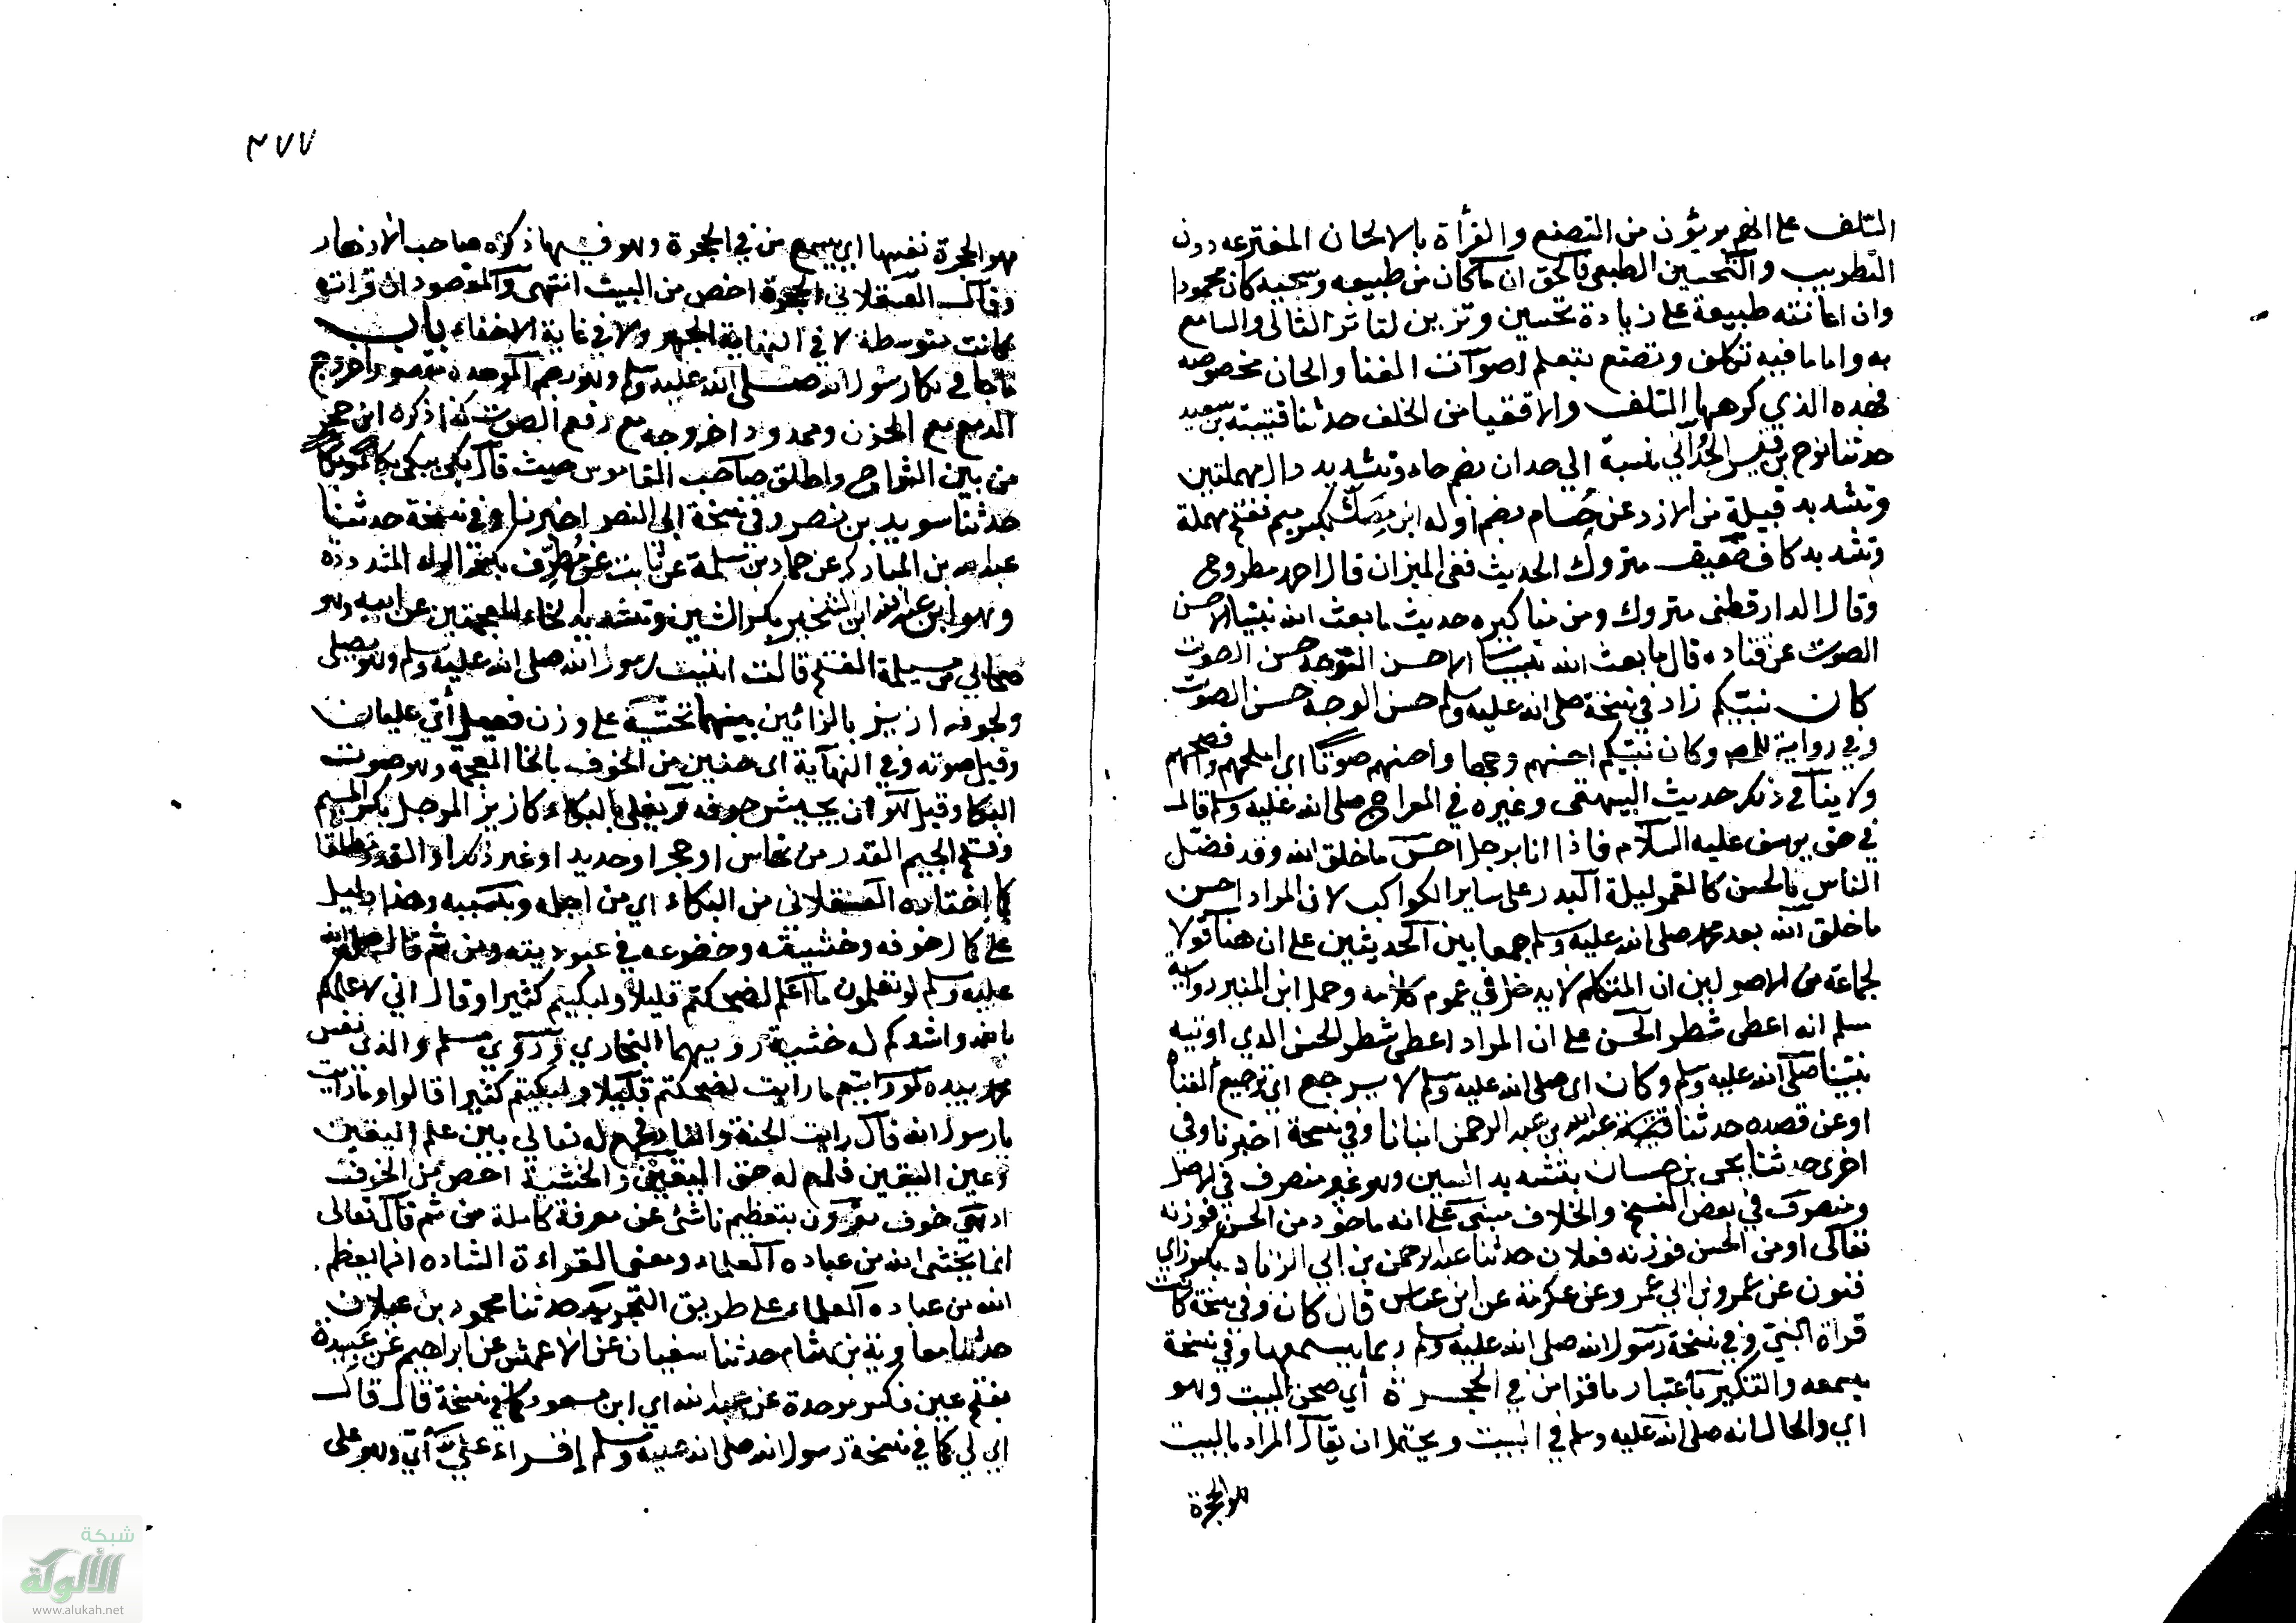 السلف علم انهم بريئون من التصنع والقرأة بالالحان المخترعه دون
التطريب والتحسين الطبعي فالحق ان ما كان من طبيعه وسجيه كان محمودا
وان اعانته طبيعة على زيادة تحسين وتزيين لتاثر التالى والسامع
به واما ما فيه تكلف وتصنع بتعلم اصوات الغنا والحان مخصوصه
فهذه الذي كرهها السلف والاتقيا من الخلف حدثنا قتيبة بن سعيد
حدثنا نوح بن قيس الحُدّاني نسبة الي حدان بضم حاء وتشديد دال مهملتين
وتشديد قبيلة من الازد عن حُسام بضم اوله ابن مِصَكّ بكسر ميم ففتح مهملة
وتشديد كاف ضعيف متروك الحديث ففى الميزان قال احمد مطروح
وقال الدارقطنى متروك ومن مناكيره حديث ما بعث الله نبيا الا حسن
الصوت عن قتاده قال ما بعث الله نبيا الا حسن الوجه حسن الصوت
كان نبيكم زاد في نسخة صلى الله عليه وسلم حسن الوجه حسن الصوت
وفي رواية للمص وكان نبيكم احسنهم وجها واحسنهم صوتا اى املحهم وافصحهم
ولا ينافي ذلك حديث البيهقى وغيره في المعراج صلى الله عليه وسلم قال
في حق يوسف عليه السلام فاذا انا برجل احسن ما خلق الله وقد فضل
الناس بالحسن كالقمر ليلة البدر على ساير الكواكب لان المراد احسن
ما خلق الله بعد محمد صلى الله عليه وسلم جمعا بين الحديثين على ان هنا قولا
لجماعة من الاصوليين ان المتكلم لا يدخل في عموم كلامه وحمل ابن المنير رواية
مسلم انه اعطى شطر الحسن على ان المراد اعطى شطر الحسن الذي اوتيه
نبينا صلى الله عليه وسلم وكان اى صلى الله عليه وسلم لا يرجع اي ترجيع الغنأ
او عن قصده حدثنا عبد الله بن عبد الرحمن انبانا وفي نسخة اخبرنا وفي
اخرى حدثنا يحى بن حسان بتشديد السين وهو غير منصرف في الاصل
ومنصرف في بعض النسخ والخلاف مبنى على انه ماخوذ من الحس فوزنه
فعالى او من الحسن فوزنه فعلان حدثنا عبد الرحمن بن ابي الزناد بكسر زاي
فنون عن عمرو بن ابي عمرو عن عكرمة عن ابن عباس قال كان وفي نسخة كانت
قراة النبي وفي نسخة رسول الله صلى الله عليه وسلم ربما يسمعها وفي نسخة
يسمعه والتذكير باعتبار ما قرا من في الحجرة أي صحن البيت وهو
اي والحال انه صلى الله عليه وسلم في البيت ويحتمل ان يقال المراد بالبيت
هو الحجرة
٣٧٧
هو الحجرة نفسها اي يسمع من في الحجرة وهو فيها ذكره صاحب الازهار
وقال العسقلاني الحجرة اخص من البيت انتهى والمقصود ان قراته
كانت متوسطة لا في النهاية الجهر ولا في غاية الاخفاء باب
ما جا في بكا رسول الله صلى الله عليه وسلم وهو بضم الموحدة مقصورا خروج
الدمع مع الحزن وممدودا خروجه مع رفع الصوت كذا ذكره ابن حجر
من بين الشراح واطلق صاحب القاموس حيث قال بكى يبكى بكا
حدثنا سويد بن نصر وفي نسخة ابن النصر اخبرنا وفي نسخة حدثنا
عبد الله بن المبارك عن حماد بن سلمة عن ثابت عن مُطرّف بكسر الراء المشددة
وهو ابن عبد الله ابن الشخير بكسر الشين وتشديد الخاء المعجمتين عن ابيه وهو
صحابي من مسيلمة الفتح قالت اتيت رسول الله صلى الله عليه وسلم وهو يصلى
ولجوفه ازيز بالزائين بينهما تحتية على وزن فعيل أى غليان
وقيل صوته وفي النهاية اى حنين من الخوف بالخا المعجمة وهو صوت
البكا وقيل هو ان يجيش جوفه ويغلى بالبكاء كازيز المرجل بكسر الميم
وفتح الجيم القدر من نحاس او حجر او حديد او غير ذلك او القدر مطلقا
كما اختاره العسقلاني من البكاء اي من اجله وبسببه وهذا دليل
على كمال خوفه وخشيته وخضوعه في عبوديته ومن ثم قال صلى الله
عليه وسلم لو تعلمون ما اعلم لضحكتم قليلا ولبكيتم كثيرا وقال اني لاعلمكم
بالله واشدكم له خشية رويهما البخاري وروي مسلم والذي نفس
محمد بيده لو رايتم ما رايت لضحكتم قليلا ولبكيتم كثيرا قالوا وما رايت
يا رسول الله قال رايت الجنة والنار فجمع له تعالي بين علم اليقين
وعين اليقين فلم له حق اليقين والخشية اخص من الخوف
اذ هي خوف مقرون بتعظيم ناشئ عن معرفة كاملة ومن ثم قال تعالى
انما يخشى الله من عباده العلماء ومعنى القراءة الشاده انما يعظم
الله من عباده العلماء على طريق التجريد حدثنا محمود بن غيلان
حدثنا معاوية بن هشام حدثنا سفيان عن الاعمش عن ابراهيم عن عَبيدة
بفتح عين فكسر موحدة عن عبد الله اي ابن مسعود كما في نسخة قال قال
اي لي كما في نسخة رسول الله صلى الله عليه وسلم إقراء علىّ أي وهو على
شبكة
الألوكة
www.alukah.net